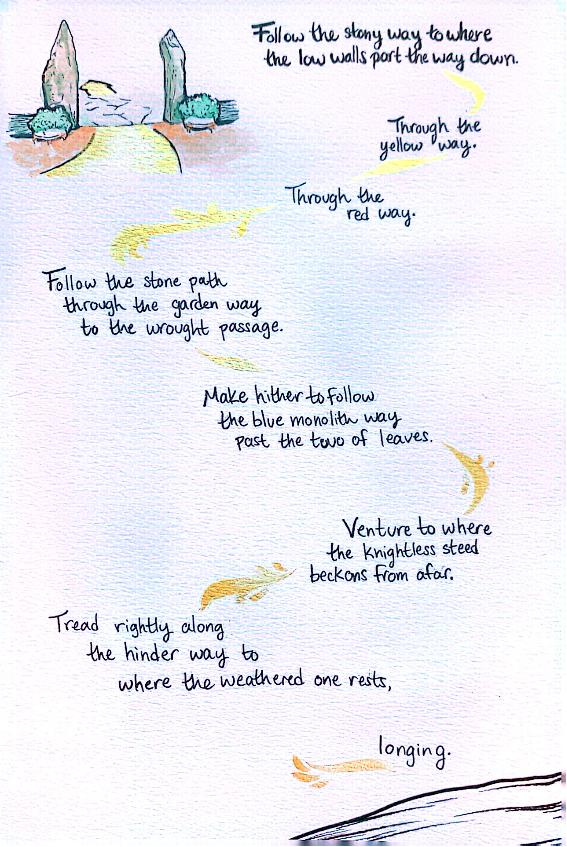 Follow the stony way to where
the low walls part the way down.
Through the
yellow way.
Through the
red way.
Follow the stone path
through the garden way
to the wrought passage.
Make hither to follow
the blue monolith way
past the two of leaves.
Venture to where
the knightless steed
beckons from afar.
Tread rightly along
the hinder way to
where the weathered one rests,
longing.